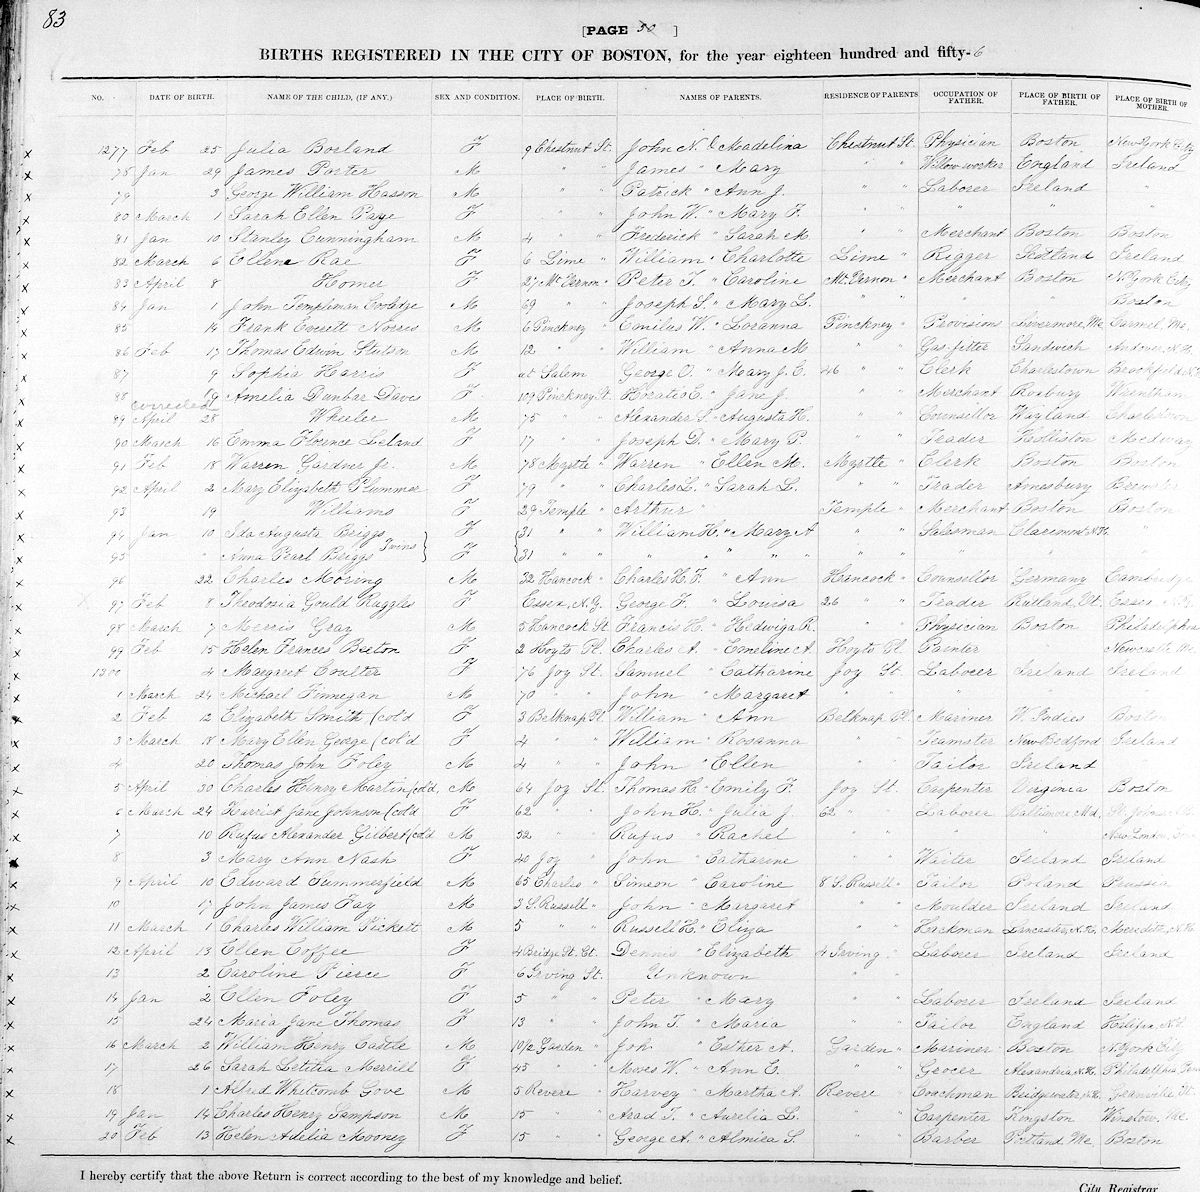 83
[PAGE 50 ]
BIRTHS REGISTERED IN THE CITY OF BOSTON, for the year eighteen hundred and fifty-6
NO. DATE OF BIRTH. NAME OF THE CHILD, (IF ANY.) SEX AND CONDITION. PLACE OF BIRTH. NAMES OF PARENTS. RESIDENCE OF PARENTS OCCUPATION OF FATHER. PLACE OF BIRTH OF FATHER. PLACE OF BIRTH OF MOTHER.
x 1277 Feb 25 Julia Borland F 9 Chestnut St. John N. & Madelina Chestnut St. Physician Boston New York City
x 78 Jan 29 James Porter M " " James " Mary " " Willow worker England Ireland
x 79 3 George William Hasson M " " Patrick " Ann J. " " Laborer Ireland "
x 80 March 1 Sarah Ellen Page F " " John W. " Mary F. " " " " "
x 81 Jan 10 Stanley Cunningham M 4 " " Frederick " Sarah M. " " Merchant Boston Boston
x 82 March 6 Ellen Rae F 6 Lime " William " Charlotte Lime " Rigger Scotland Ireland
x 83 April 8 Homer F 27 Mt. Vernon " Peter T. " Caroline Mt. Vernon " Merchant Boston N. York City
x 84 Jan 1 John Templeman Coolidge M 69 " " Joseph S. " Mary L. " " " " Boston
x 85 14 Frank Everett Norris M 6 Pinckney " Emilius W. " Loranna Pinckney " Provisions Livermore, Me. Carmel, Me.
x 86 Feb 17 Thomas Edwin Stutson M 12 " " William " Anna M " " Gas-fitter Sandwich Andover, N.H.
x 87 9 Sophia Harris F at Salem George O. " Mary J. E. 46 " " Clerk Charlestown Brookfield
x 88 19 Amelia Dunbar Davis F 109 Pinckney St. Horatio E. " Jane J. " " Merchant Roxbury Wrentham
corrected
x 89 April 28 Wheeler M 75 " " Alexander S. " Augusta H. " " Counsellor Wayland Charlestown
x 90 March 16 Emma Florence Leland F 17 " " Joseph D. " Mary P. " " Trader Holliston Medway
x 91 Feb 18 Warren Gardner Jr. M 78 Myrtle " Warren " Ellen M. Myrtle " Clerk Boston Boston
x 92 April 2 Mary Elizabeth Plummer F 79 " " Charles L. " Sarah L. " " Trader Amesbury Brewster
x 93 19 Williams F 29 Temple " Arthur " Temple " Merchant Boston Boston
x 94 Jan 10 Ida Augusta Briggs Twins } F { 31 " " William H. " Mary A " " Salesman Claremont N.H. "
x 95 " Anna Pearl Briggs F 31 " " " " " " " " " "
x 96 22 Charles Moring M 32 Hancock " Charles H. F. " Ann Hancock " Counsellor Germany Cambridge
x 97 Feb 8 Theodosia Gould Ruggles F Essex, N.Y. George F. " Louisa 26 " " Trader Rutland, Vt. Essex N.Y.
x 98 March 7 Morris Gray M 5 Hancock St. Francis H. " Hedwiga R. " " Physician Boston Philadelphia
x 99 Feb 15 Helen Frances Beeton F 2 Hoyts Pl. Charles A. " Emeline A Hoyts Pl. Painter " Newcastle Me.
x 1300 4 Margaret Coulter F 76 Joy St. Samuel " Catharine Joy St. Laborer Ireland Ireland
x 1 March 24 Michael Finnegan M 70 " " John " Margaret " " " " "
x 2 Feb 12 Elizabeth Smith (col'd F 3 Belknap Pl. William " Ann Belknap Pl. Mariner W. Indies Boston
x 3 March 18 Mary Ellen George (col'd F 4 " " William " Rosanna " " Teamster New Bedford Ireland
x 4 20 Thomas John Foley M 4 " " John " Ellen " " Tailor Ireland "
x 5 April 30 Charles Henry Martin (col'd, M 64 Joy St. Thomas H. " Emily F. Joy St. Carpenter Virginia Boston
x 6 March 24 Harriet Jane Johnson (col'd F 62 " " John H. " Julia J. 62 " " Laborer Baltimore Md. St. Johns
x 7 10 Rufus Alexander Gilbert (col'd M 32 " " Rufus " Rachel " " " " New London
8 3 Mary Ann Nash F 40 Joy " John " Catharine " " Waiter Ireland Ireland
x 9 April 10 Edward Summerfield M 65 Charles " Simeon " Caroline 8 S. Russell " Tailor Poland Prussia
x 10 17 John James Fay M 3 S. Russell " John " Margaret " " Moulder Ireland Ireland
x 11 March 1 Charles William Pickett M 5 " " Russell H. " Eliza " " Hackman Lancaster, N.H. Meredith, N.H.
x 12 April 13 Ellen Coffee F 4 Bridge St. Ct. Dennis " Elizabeth 4 Irving " Laborer Ireland Ireland
x 13 2 Caroline Pierce F 6 Irving St. Unknown " "
x 14 Jan 2 Ellen Foley F 5 " " Peter " Mary " " Laborer Ireland Ireland
x 15 24 Maria Jane Thomas F 13 " " John T. " Maria " " Tailor England Halifax N.S.
x 16 March 2 William Henry Castle M 10½ Garden " Joh " Esther A. Garden " Mariner Boston N. York City
x 17 26 Sarah Letitia Merrill F 45 " " Moses W. " Ann E. " " Grocer Alexandria N.H. Philadelphia
x 18 1 Alfred Whitcomb Gove M 5 Revere " Harvey " Martha A. Revere " Coachman Bridgewater, N.H. Granville, Vt.
x 19 Jan 14 Charles Henry Sampson M 15 " " Arad T. " Aurelia L. " " Carpenter Kingston Winslow, Me.
x 20 Feb 13 Helen Adelia Mooney F 15 " " George A. " Almira S. " " Barber Portland Me. Boston
I hereby certify that the above Return is correct according to the best of my knowledge and belief.
City Registrar